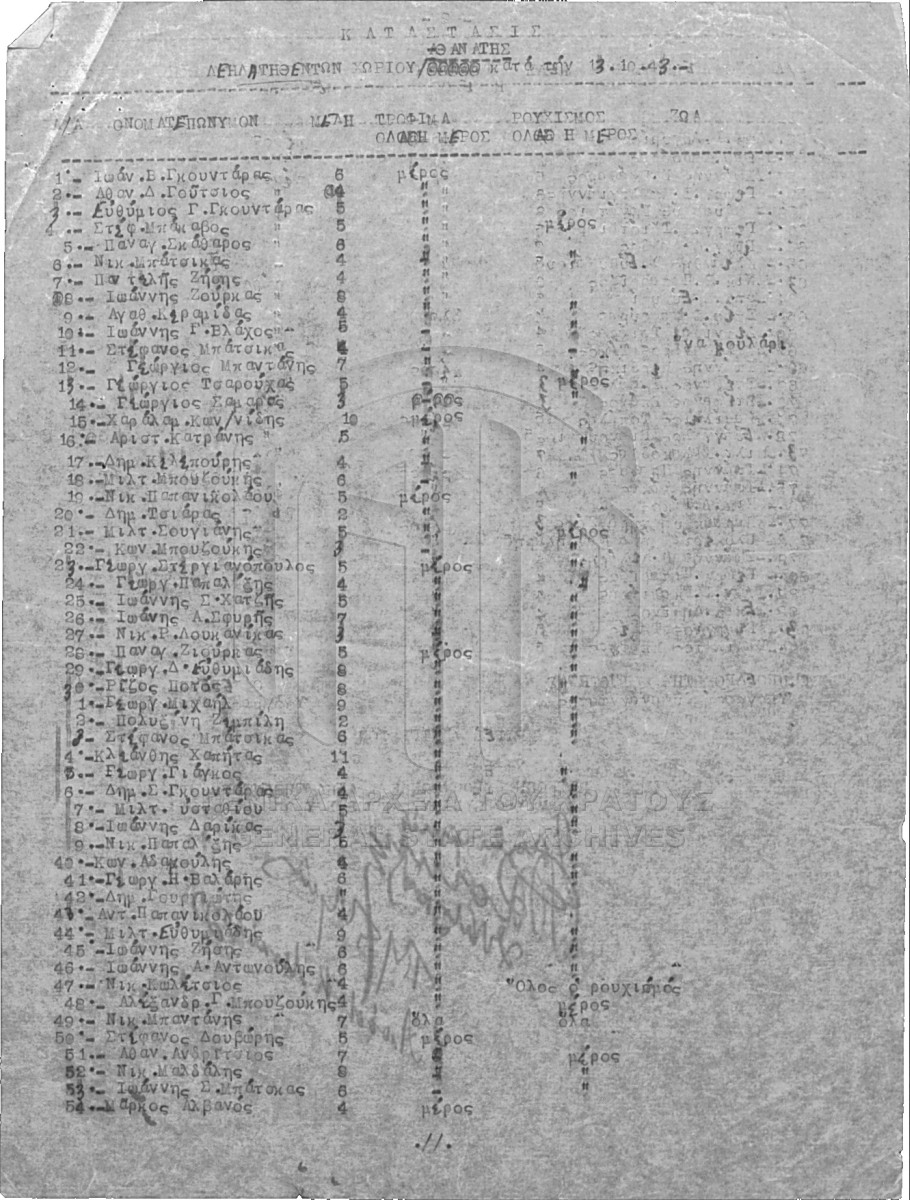 ΚΑΤΑΣΤΑΣΙΣ
ΘΑΝΑΤΗΣ
ΛΕΗΛΑΤΗΘΕΝΤΩΝ ΧΩΡΙΟΥ/ κατά τήν 13.10.43.-
Α/Α ΟΝΟΜΑΤΕΠΩΝΥΜΟΝ ΜΕΛΗ ΤΡΟΦΙΜΑ ΡΟΥΧΙΣΜΟΣ ΖΩΑ
ΟΛΑ Η ΜΕΡΟΣ ΟΛΟΣ Η ΜΕΡΟΣ
1.- Ιωάν.Β.Γκουντάρας 6 μέρος
2.- Αθαν.Δ.Γούτσιος 14 "
3.- Ευθύμιος Γ.Γκουντάρας 5 "
4.- Στέφ.Μπάκαβος 5 " μέρος
5.- Παναγ.Σκάθαρος 6 "
6.- Νικ.Μπάτσικας 4 " "
7.- Παντελής Ζήσης 4 "
8.- Ιωάννης Ζούρκας 8 " "
9.- Αγαθ.Κεραμίδας 4 " "
10.- Ιωάννης Γ.Βλάχος 5 " "
11.- Στέφανος Μπάτσικας 4 " "να μουλάρι
12.- Γεώργιος Μπαντάνης 7 "
13.- Γεώργιος Τσαρούχας 5 " μέρος
14.- Γεώργιος Σαμαράς 3 μέρος
15.- Χαράλαμ.Κων/νίδης 10 μέρος
16.- Αριστ.Κατράνης 5 " "
17.-Δημ.Κελεπούρης 4 "
18.-Μιλτ.Μπουζούκης 6 " "
19.-Νικ.Παπανικολάου 5 μέρος
20.- Δημ.Τσιάρας 2 "
21.- Μιλτ.Σουγιάνης 5 " μέρος
22.- Κων.Μπουζούκης 3 "
23.-Γεωργ.Στεργιανόπουλος 5 μέρος "
24.- Γεωργ.Παπαλέξης 4 " "
25.- Ιωάννης Σ.Χατζής 5 " "
26.- Ιωάνης Α.Σφυρής 7 " "
27.- Νικ.Ρ.Λουκανίκας 3 " "
28.- Παναγ.Ζιούρκας 5 μέρος "
29.-Γεωργ.Δ.Ευθυμιάδης 8 " "
30.-Ρίζος Ποτός 8 " "
1.-Γεωργ.Μιχαήλ 9 " "
2.- Πολυξένη Ζεμπίλη 2 " "
3.- Στέφανος Μπάτσικας 6 " "
4.-Κλεάνθης Χαπήτας 11 "
5.- Γεωργ.Γιάγκος 4 " "
6.- Δημ.Σ.Γκουντάρας 4 " "
7.- Μιλτ. υσταθίου 5 " "
8.-Ιωάννης Δαρίκας "
9.-Νικ.Παπαλέξης 5 "
40.-Κων.Αδακούλης 4 " "
41.-Γεωργ.Η.Βαλάρης 6 " "
42.-Δημ. " "
43.- Αντ.Παπανικολάου 4 "
44.- Μιλτ.Ευθυμιάδης 9 " "
45.-Ιωάννης Ζήσης 6 " "
46.- Ιωάννης Α.Αντωνούλης 6 "
47.- Νικ.Κωλέτσιος 4 " Όλος ο ρουχισμός
48.- Αλέξανδρ.Γ.Μπουζούκης 4 " μέρος
49.- Νικ.Μπαντάνης 7 όλα όλα
50.- Στέφανος Δουβώρης 5 μέρος
51.- Αθαν.Ανδρίτσιος 7 " μέρος
52.- Νικ.Μαλδάλης 8 " "
53.- Ιωάννης Σ.Μπάτσκας 6 " "
54.-Μάρκος Αλβανός 4 μέρος
.11.
ΓΕΝΙΚΑ ΑΡΧΕΙΑ ΤΟΥ ΚΡΑΤΟΥΣ
GENERAL STATE ARCHIVES